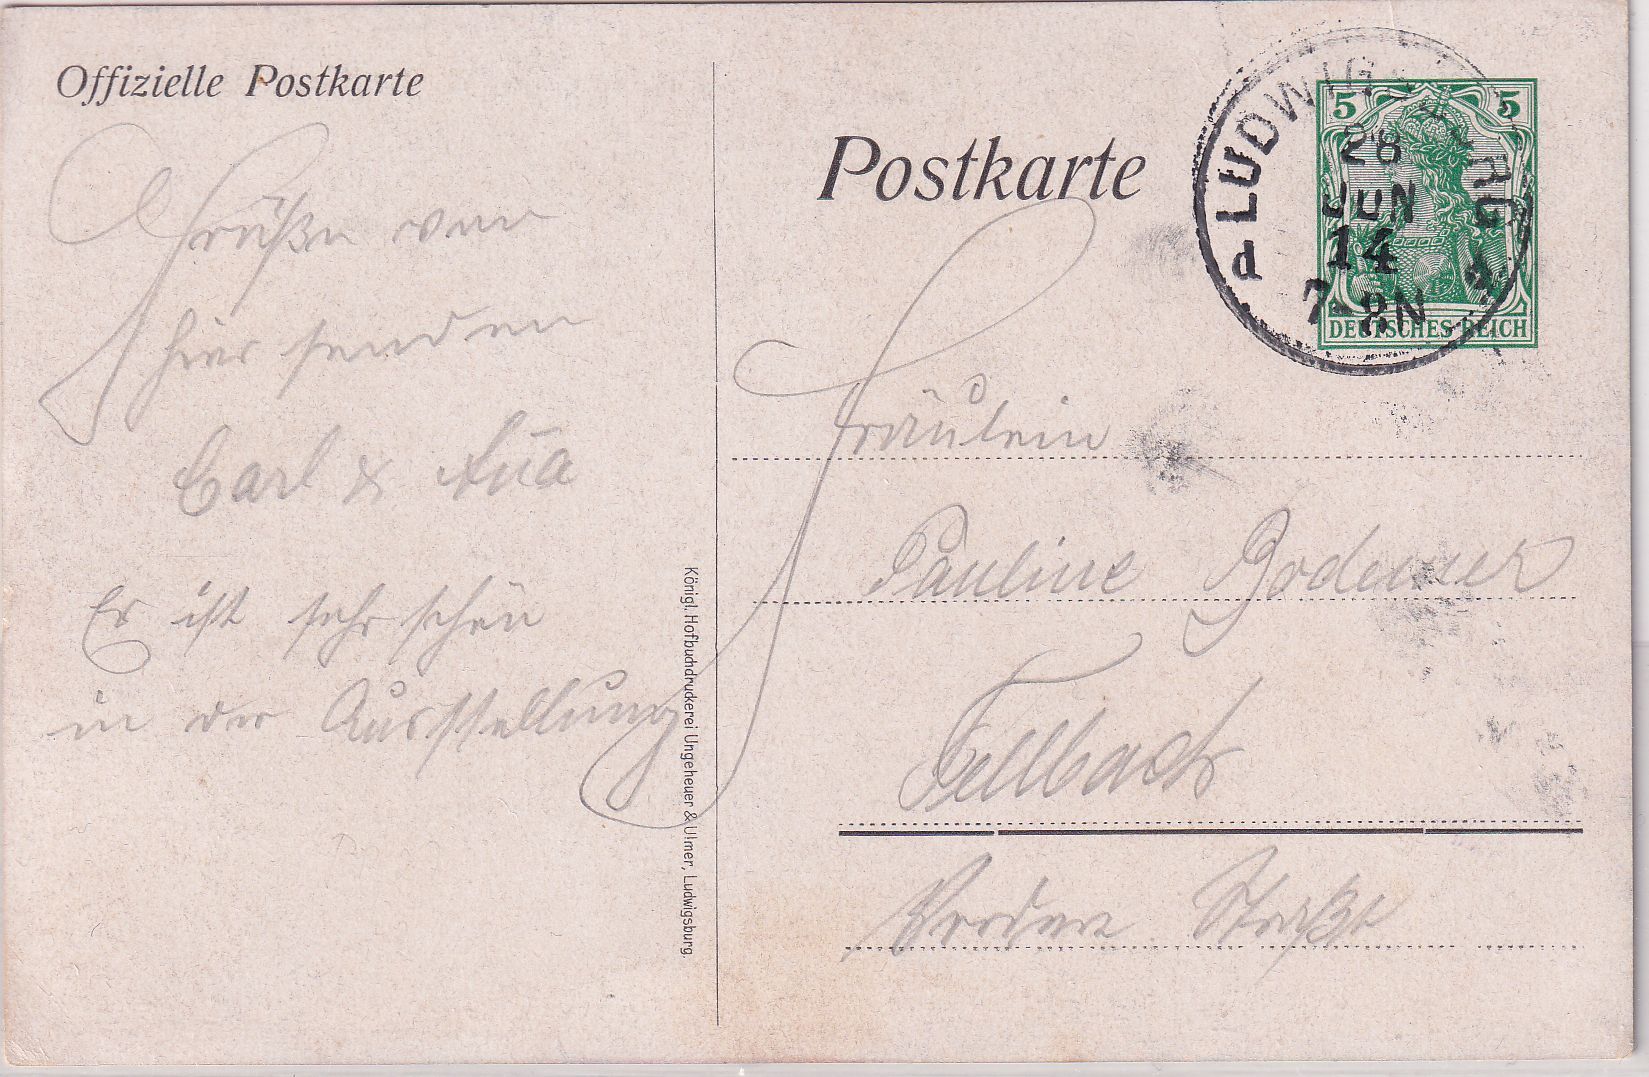 Offizielle Postkarte
Grüße von
hier senden
Carl &
Es ist sehr schön
in der Ausstellung
Königl. Hofbuchdruckerei Ungeheuer & Ulmer, Ludwigsburg.
Postkarte
LUDWIGSBURG
28
JUN
14
7-8N
d
5 5
DEUTSCHES REICH
Fräulein
Pauline Bodemer
Fellbach
Straße